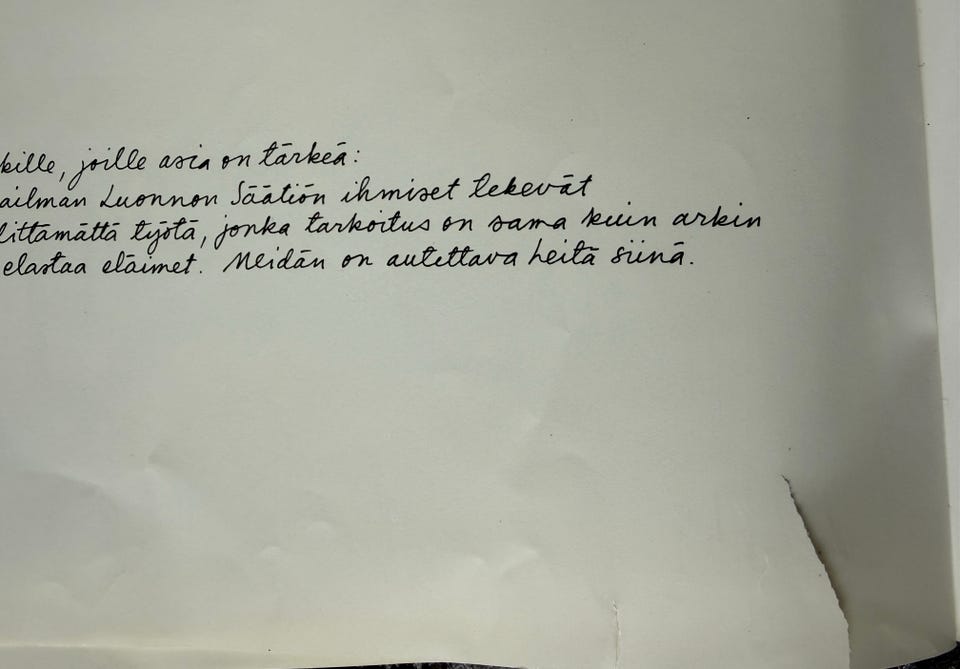 kille, joille asia on tärkeä:
ailman Luonnon Säätiön ihmiset tekevät
littämättä työtä, jonka tarkoitus on sama kuin arkin
elastaa eläimet. Meidän on autettava heitä siinä.